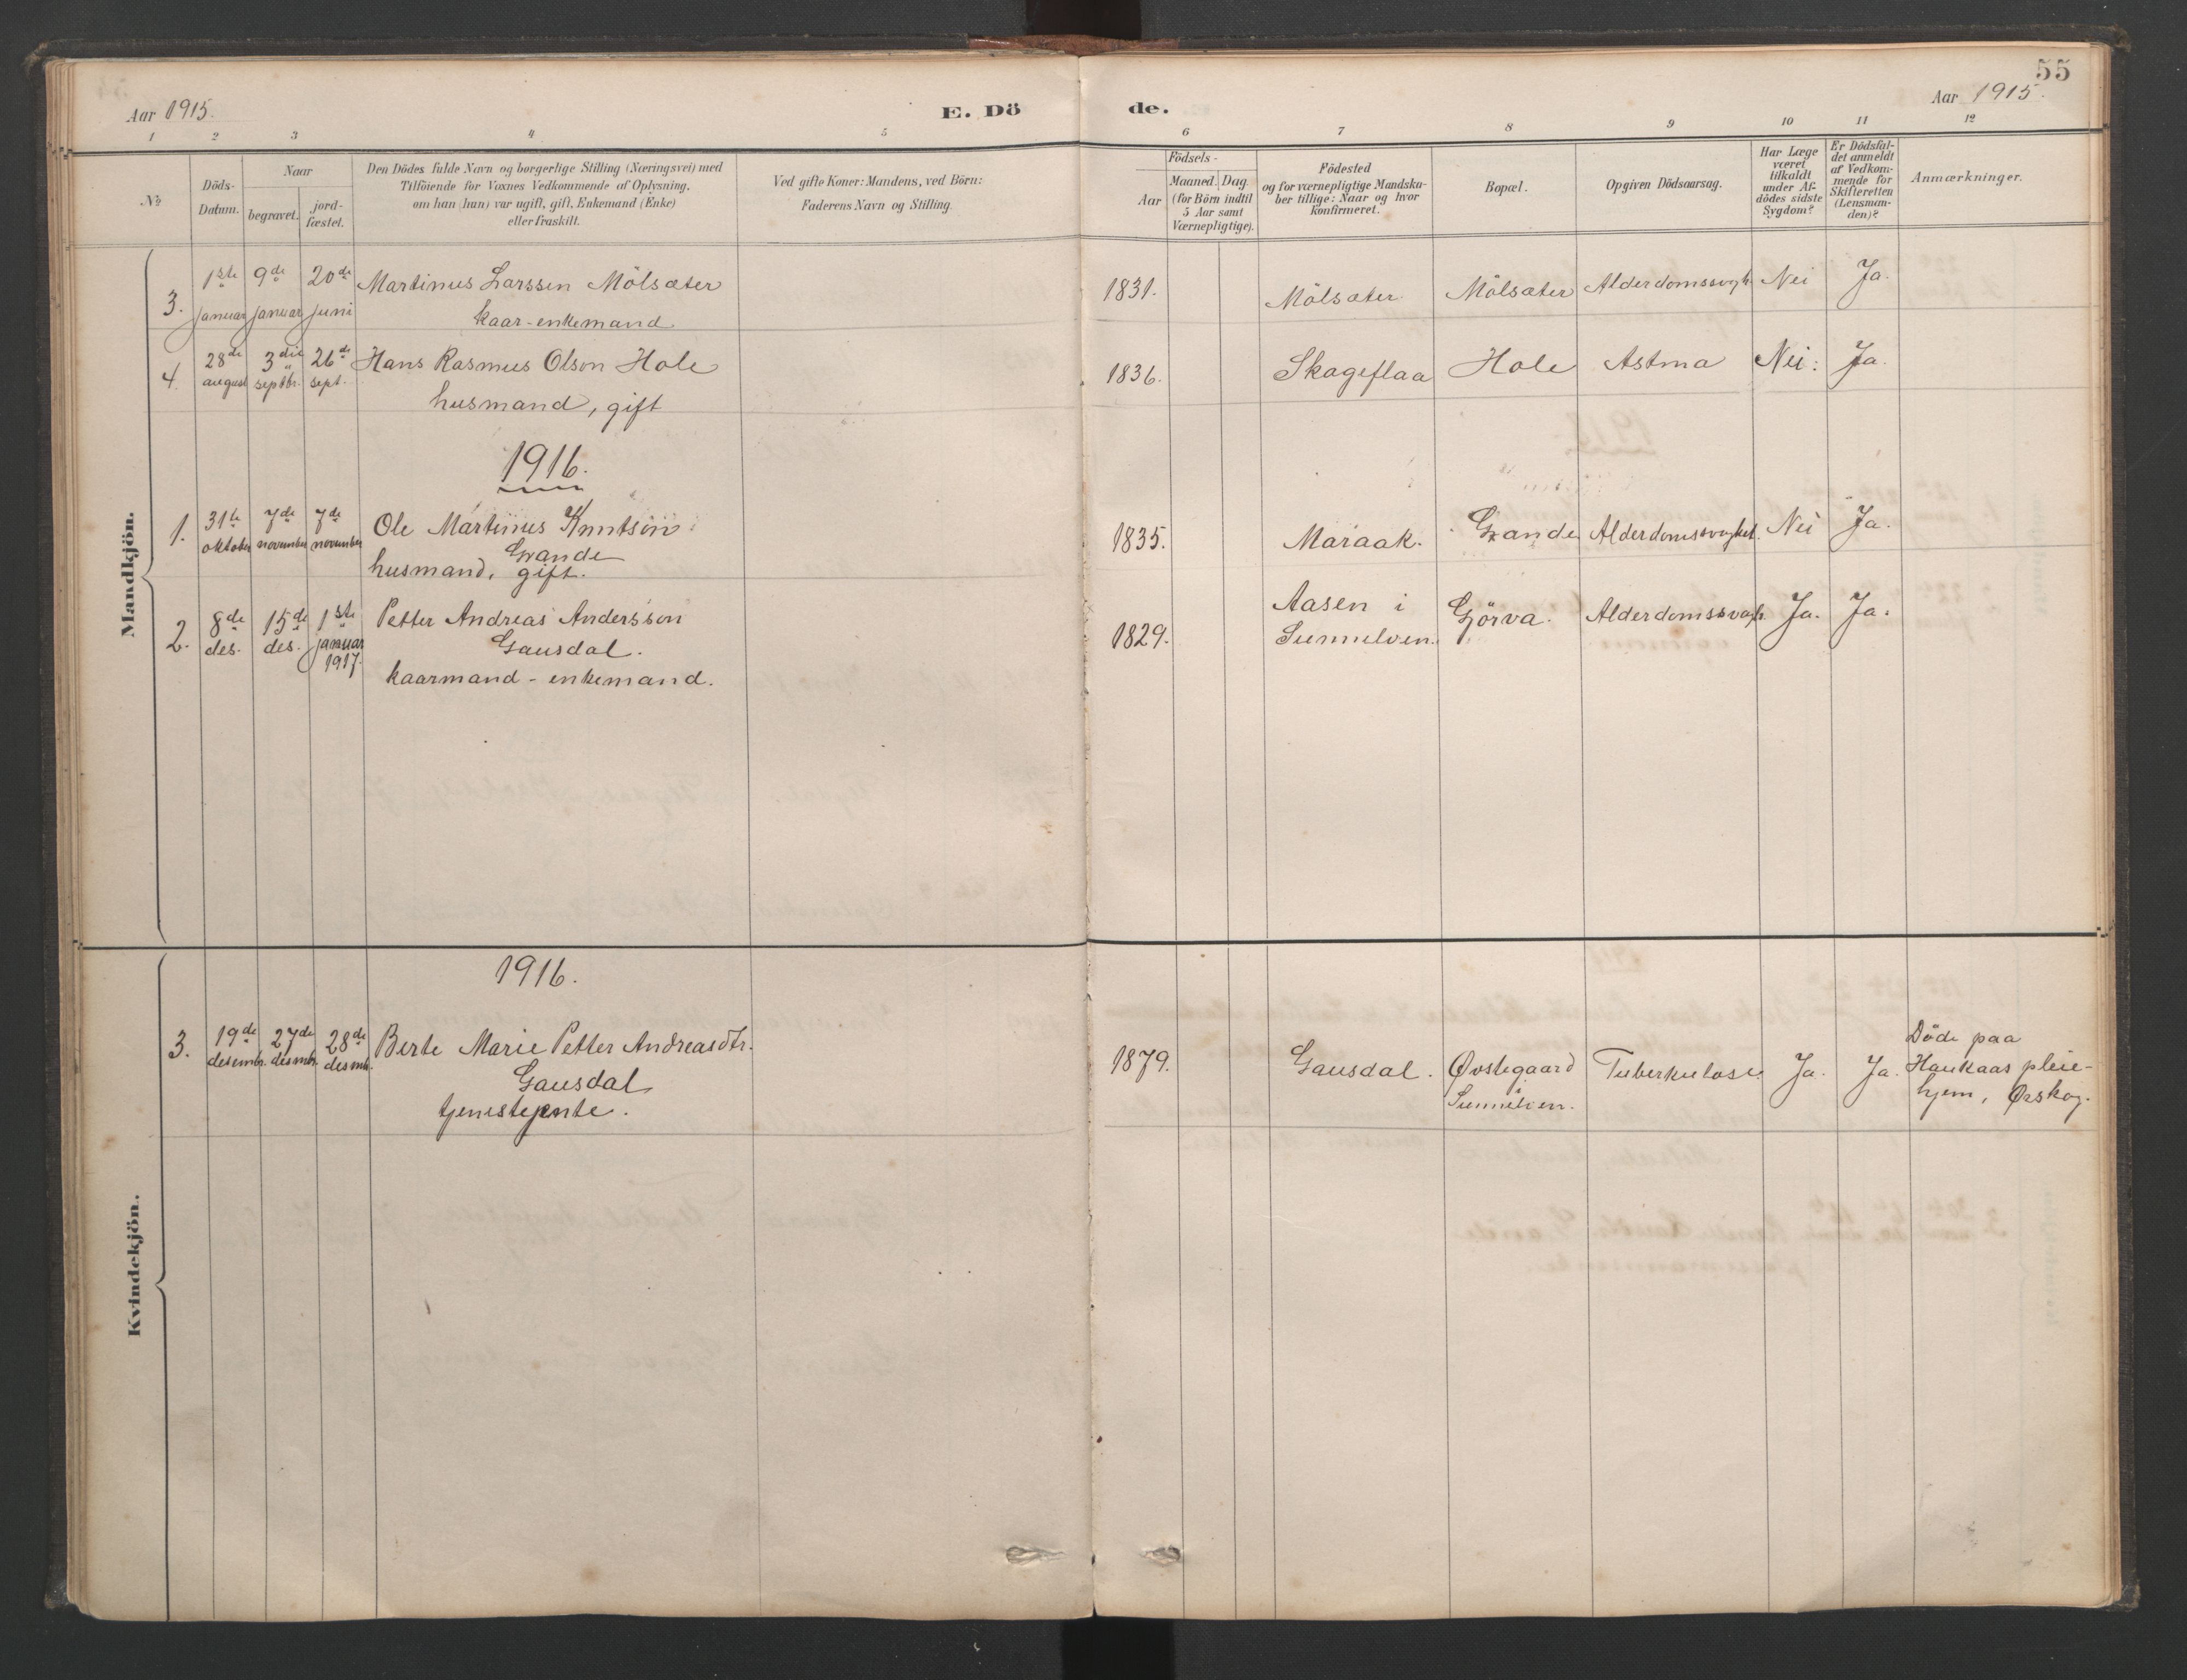 55
Aar 1915.
E. Dö
de.
Aar 1915.
1 2 3 4 5 6 7 8 9 10 11 12
№
Döds-
Datum.
Naar
begravet.
jord-
fæstet.
Den Dödes fulde Navn og borgerlige Stilling (Næringsvei) med
Tilföiende for Voxnes Vedkommende af Oplysning,
om han (hun) var ugift, gift, Enkemand (Enke)
eller fraskilt.
Ved gifte Koner: Mandens, ved Börn:
Faderens Navn og Stilling.
Födsels-
Aar
Maaned. Dag.
(for Börn indtil
5 Aar samt
Værnepligtige).
Födested
og for værnepligtige Mandska-
ber tillige: Naar og hvor
konfirmeret.
Bopæl.
Opgiven Dödsaarsag.
Har Læge
været
tilkaldt
under Af-
dödes sidste
Sygdom?
Er Dödsfal-
det anmeldt
af Vedkom-
mende for
Skifteretten
(Lensman-
den)?
Anmærkninger.
Mandkjön.
3. 1ste januar 9de januar 20de juni Martinus Larssen Mölsæter
kaar-enkemand
1831. Mölsæter Mölsæter Alderdomssvagh. Nei Ja.
4. 28de august 3die septbr. 26de sept. Hans Rasmus Olson Hole
husmand, gift
1836. Skageflaa Hole Astma Nei: Ja.
1916.
1. 31te oktober 7de november 7de november Ole Martinus Knutson
Grande
husmand, gift.
1835. Maraak. Grande Alderdomssvaghet. Nei Ja.
2. 8de des. 15de des. 1ste januar 1917. Petter Andreas Andersson
Gausdal.
kaarmand - enkemand.
1829. Aasen i
Sunnelven. Görva. Alderdomssvagh. Ja. Ja.
Kvindekjön.
1916.
3. 19de desembr. 27de desmbr. 28de desmbr. Berte Marie Petter Andreasdtr.
Gausdal
tjenestejente.
1879. Gausdal. Øvstegaard
i
Sunnelven. Tuberkulose. Ja. Ja.
Döde paa
Haukaas pleie-
hjem, Ørskog.